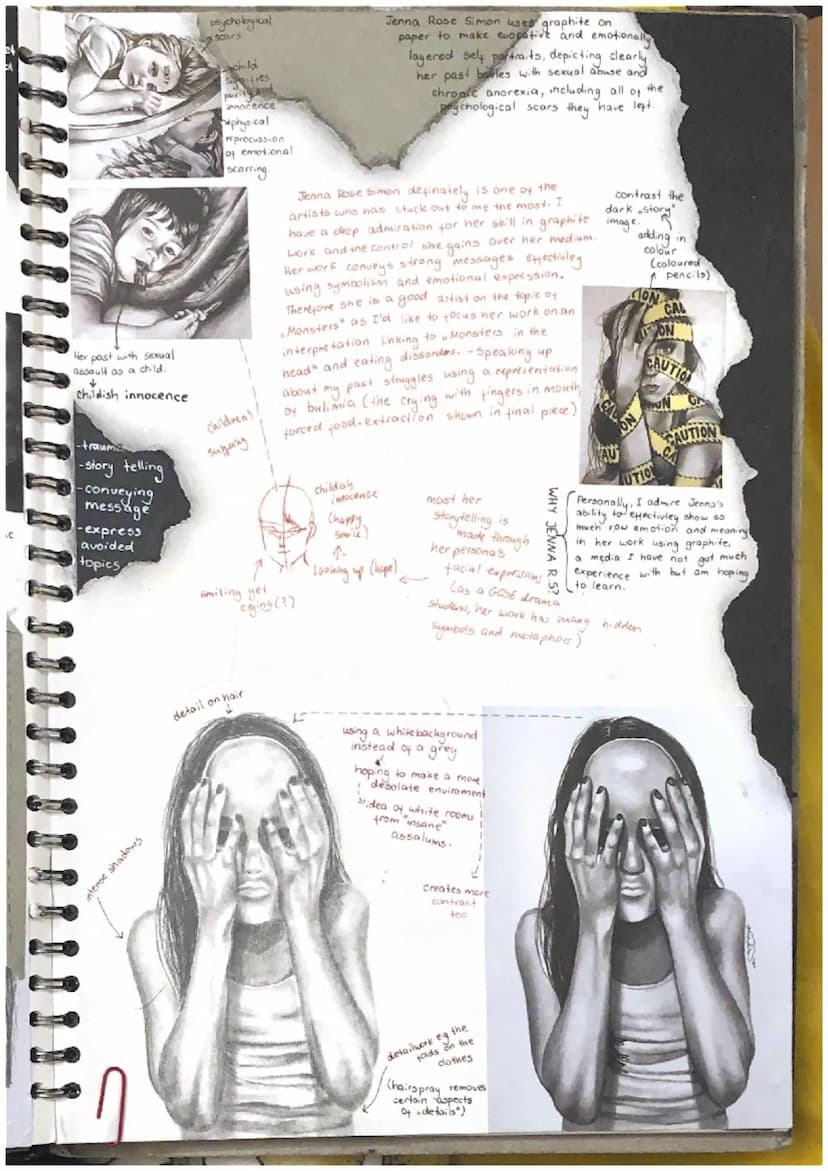 psychological
scars
child
signifies
purity and
innocence
physical
reprocussion
of emotional
scarring.
Jenna Rose Simon uses graphite on
paper to make evocative and emotionally
layered self portraits, depicting clearly
her past battles with sexual abuse and
chronic anorexia, including all of the
psychological scars they have left.
Jenna Rose Simon definately is one of the
artists who has stuck out to me the most. I
have a deep admiration for her skill in graphite
work and the control she gains over her medium.
Her work conveys strong messages effectivley
using symbolism and emotional expression.
Therefore she is a good artist on the topic of
„Monsters" as I'd like to focus her work on an
interpretation linking to „Monsters in the
head" and eating dissorders. - Speaking up
about my past struggles using a representation
of bulimia (the crying with fingers in mouth,
forced food-extraction shown in final piece)
contrast the
dark „story"
image.
adding in
colour
(coloured
pencils)
CAUTION
CAUTION
Her past with sexual
assault as a child.
childish innocence
-trauma
-story telling
-conveying
message
-express
avoided
topics
childish
innocence
(happy
smile)
Looking up (hope)
smiling yet
crying(?)
most her
storytelling is
made through
her persona's
facial expressions
(as a GCSE drama
student, her work has many hidden
symbols and metaphors)
WHY JENNA R.S?
Personally, I admire Jenna's
ability to effectivley show so
much raw emotion and meaning
in her work using graphite,
a media I have not got much
experience with but am hoping
to learn.
detail on hair
using a white background
instead of a grey
hoping to make a more
desolate enviroment
idea of white rooms
from "insane"
assalums.
intense shadows
creates more
contrast
too
detailwork eg the
folds on the
clothes
(hairspray removes
certain aspects
of „details")